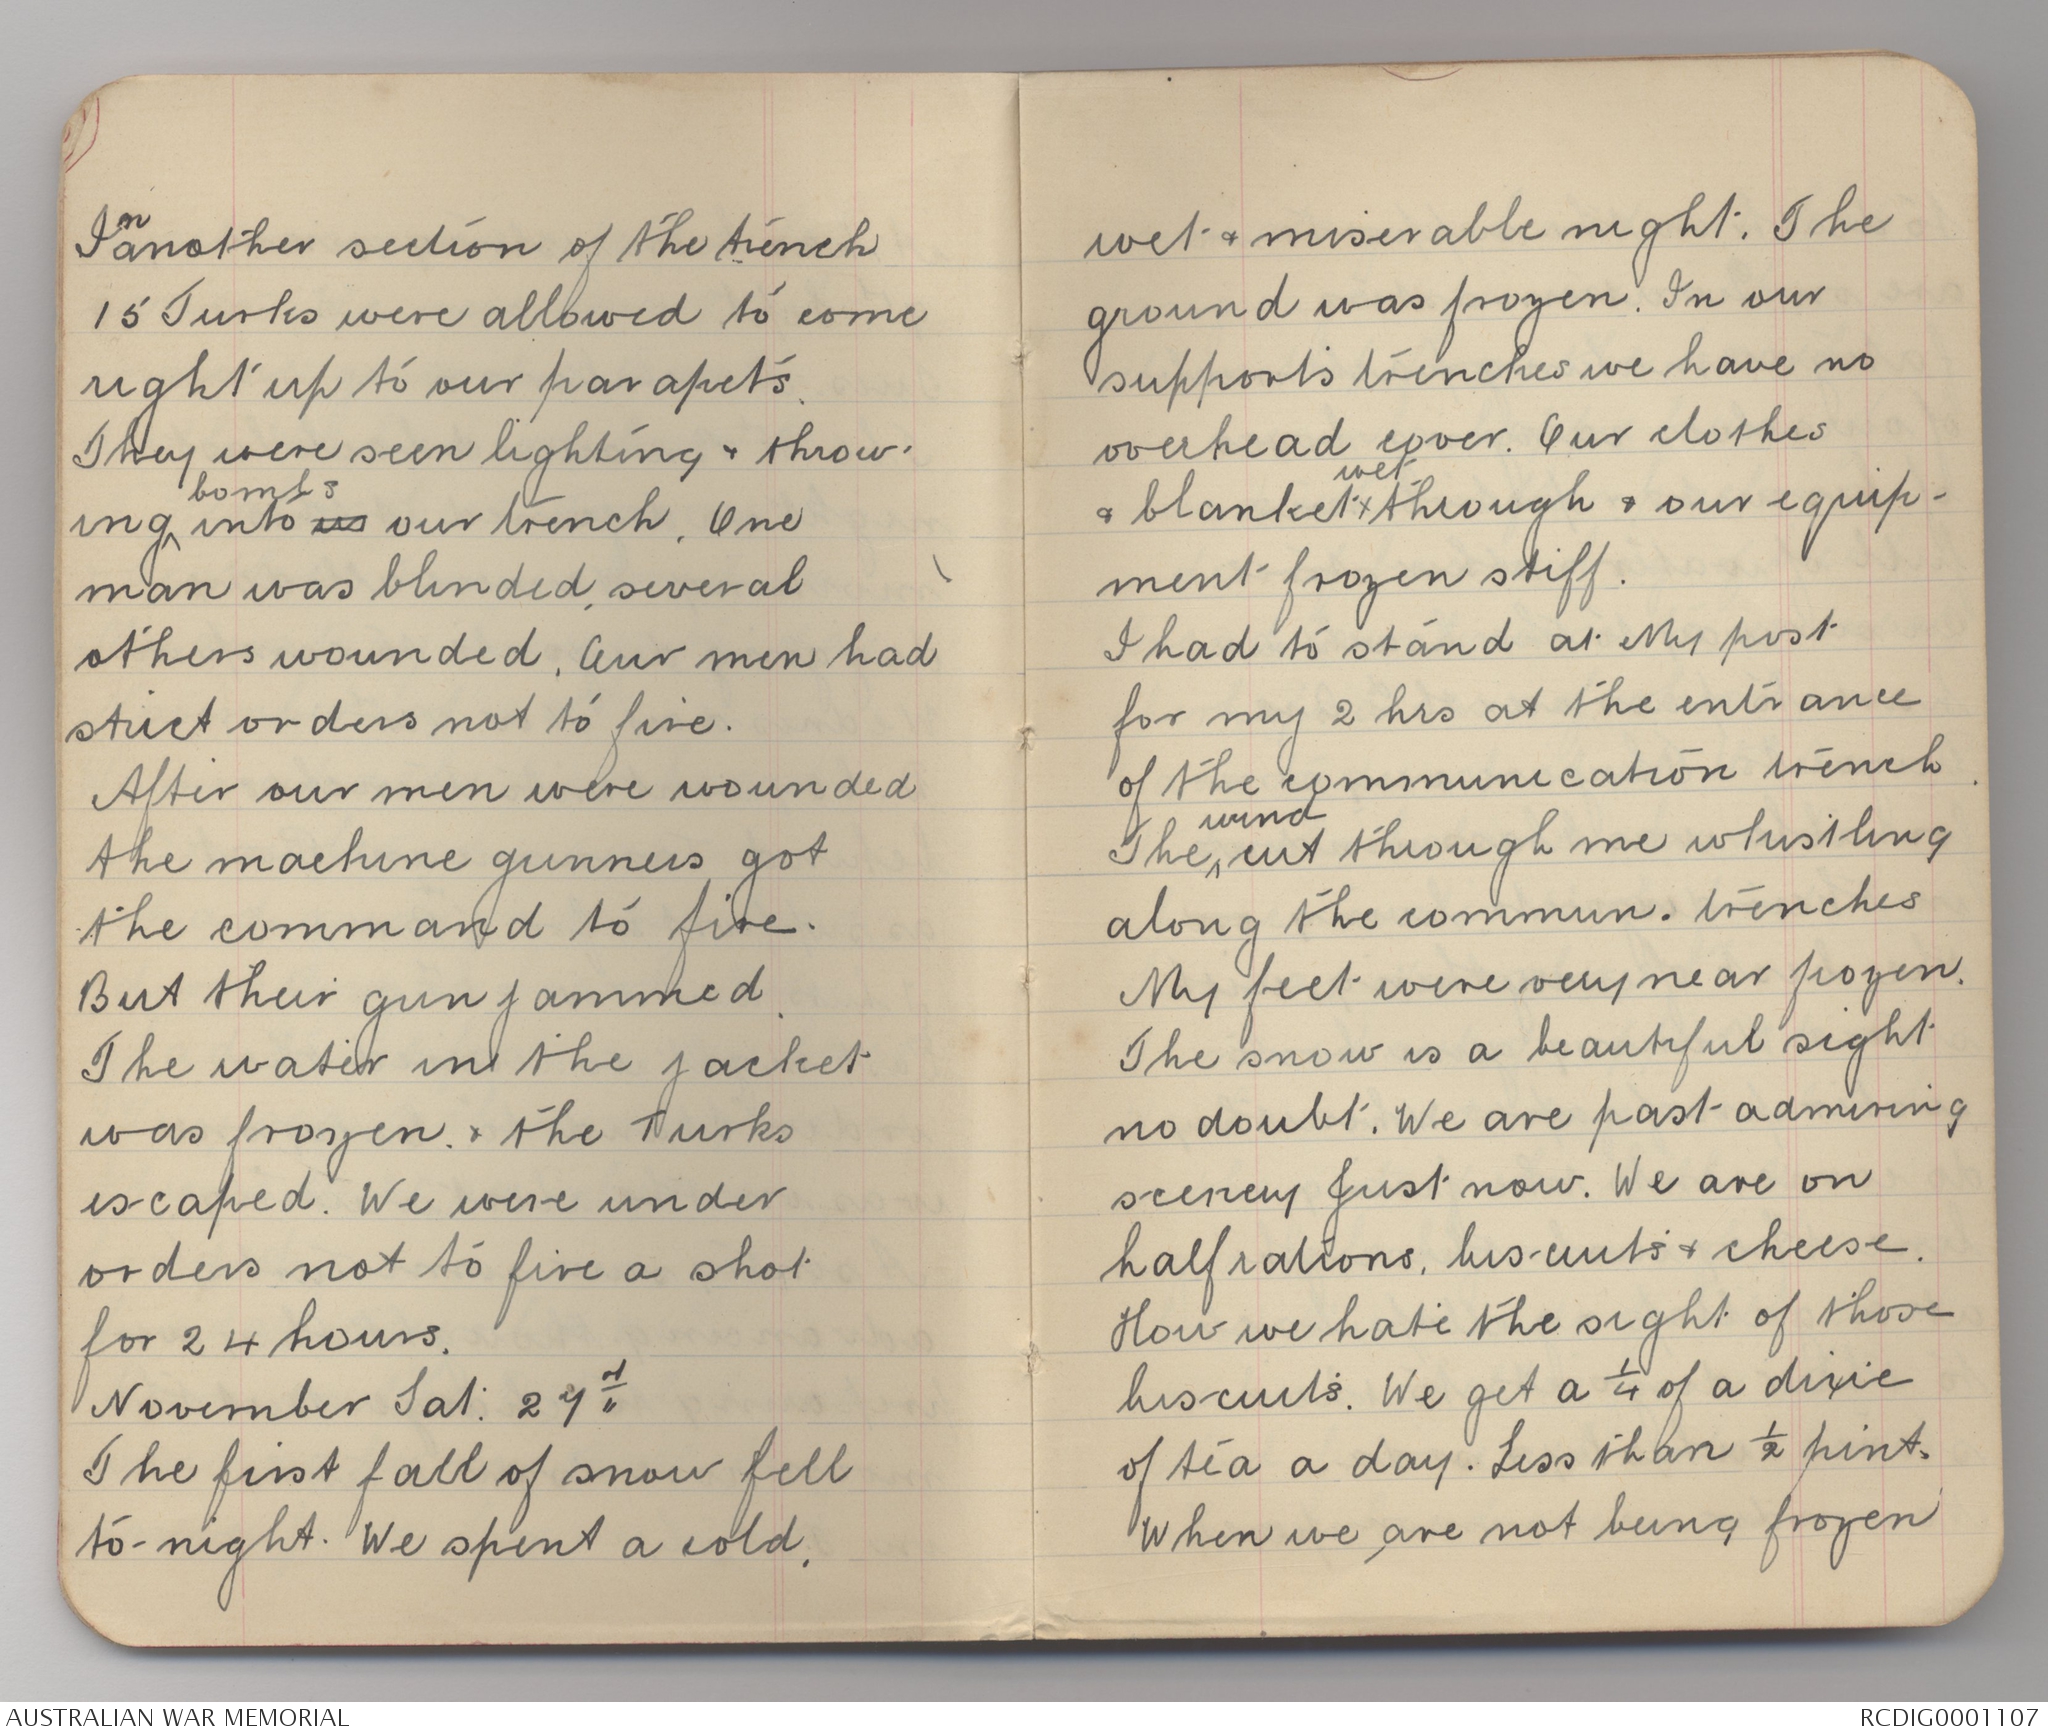 In another section of the trench
15 Turks were allowed to come
right up to our parapets.
They were seen lighting & throw-
ing bombs into us our trench. One
man was blinded, several
others wounded. Our men had
strict orders not to fire.
After our men were wounded
the machine gunners got
the command to fire.
But their gun jammed.
The water in the jacket
was frozen. & the Turks
escaped. We were under
orders not to fire a shot
for 24 hours.
November Sat. 27th
The first fall of snow fell
to-night. We spent a cold,
wet & miserable night. The
ground was frozen. In our
supports trenches we have no
overhead cover. Our clothes
& blanket wet through & our equip-
ment frozen stiff.
I had to stand at My post
for my 2 hrs at the entrance
of the communication trench.
The wind cut through me whistling
along the commun. trenches
My feet were very near frozen.
The snow is a beautiful sight
no doubt. We are past admiring
scenery just now. We are on
half rations, biscuits & cheese.
How we hate the sight of those
biscuits. We get a 1/4 of a dixie
of tea a day. Less than 1/2 pint.
When we are not being frozen
AUSTRALIAN WAR MEMORIAL
RCDIG0001107